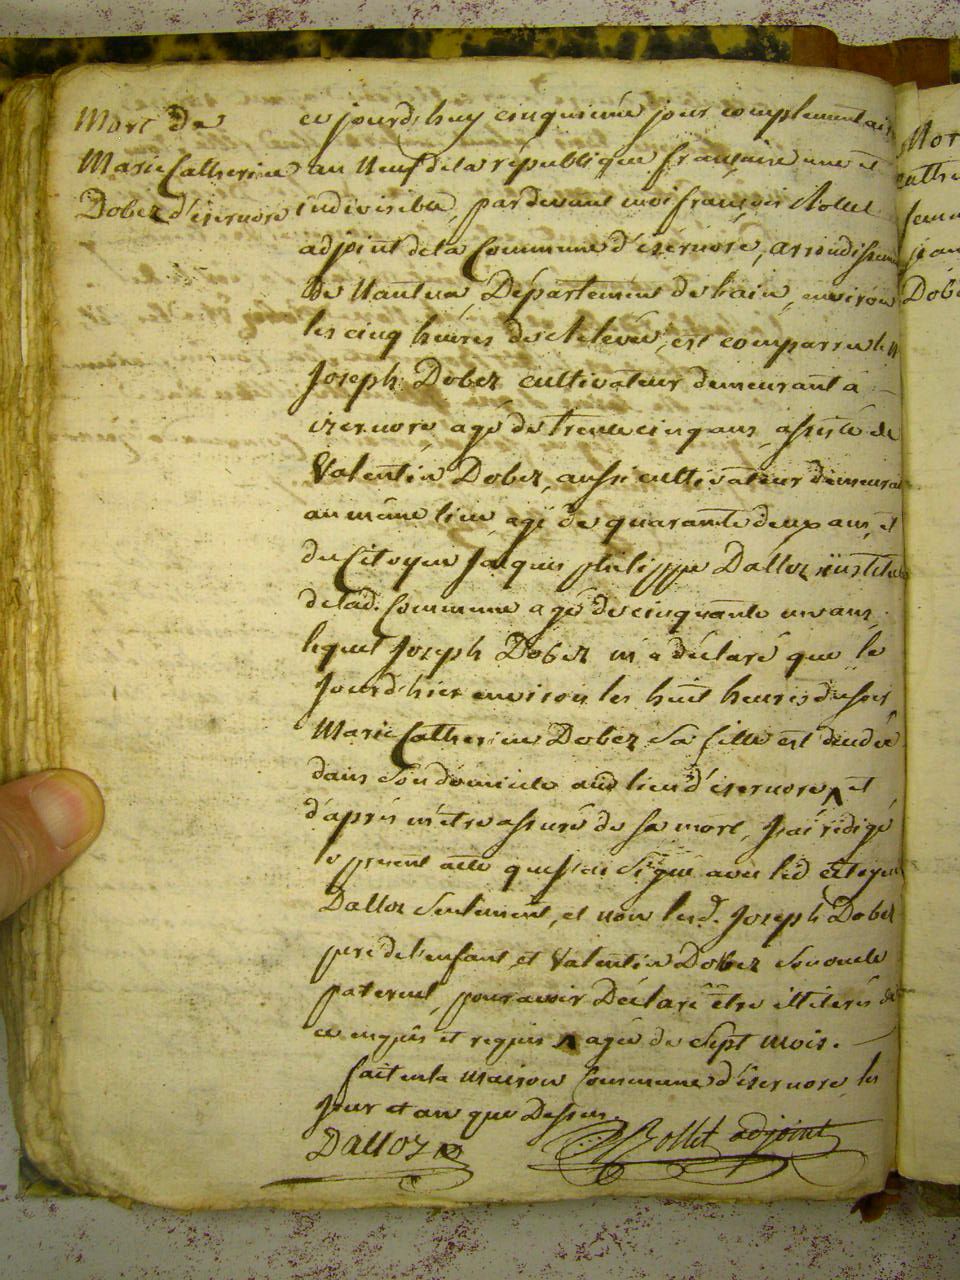 Mort de
Marie Catherine
Dobez d'isernore
ce jourd'huy cinquieme jour complementair
an Neuf de la république française une et
indivisible, pardevant moi françois Rollet
adjoint de la Commune d'isernore, arrondissem
de Nantua, Département de l'ain, environ
les cinq heures de relevée, est comparru le
Joseph Dobez cultivateur demeurant à
isernore agé de trente cinq ans, assisté de
Valentin Dobez, aussi cultivateur demeurant
au même lieu agé de quarante deux ans, et
du Citoyen Jacques philippe Dalloz institu
de lad. Commune agé de cinquante un ans,
lequel Joseph Dobez m'a déclaré que le
Jourd'hier environ les huit heures du soir
Marie Catherine Dobez sa fille est décédée
dans son domicile aud lieu d'isernore, et
d'après m'être assuré de sa mort, J'ai rédigé
le present acte que J'ai signé avec led citoyen
Dalloz seulement, et non lesd. Joseph Dobez
pere de l'enfant et Valentin Dobez son oncle
paternel, pour avoir Déclaré être illiterés de
ce enquis et requis agée de sept mois.
fait en la maison Commune d'isernore, les
Jour et an que Dessus.
Dalloz
Rollet adjoint
Mor
cathe
femm
jean
Dobe